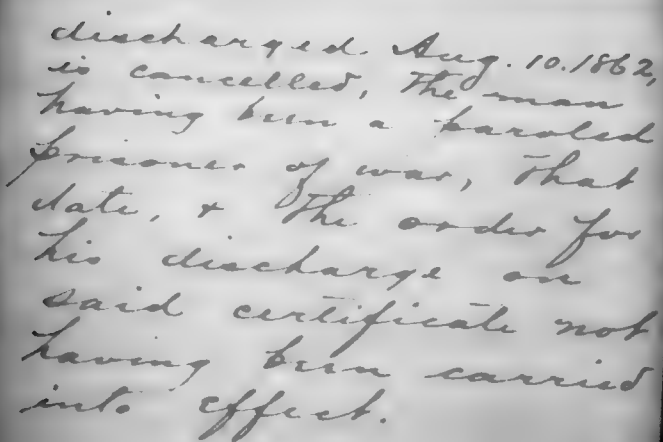 discharged. Aug. 10. 1862,
is cancelled, the man
having been a paroled
prisoner of war, that
date, & the order for
his discharge on
said certificate not
having been carried
into effect.